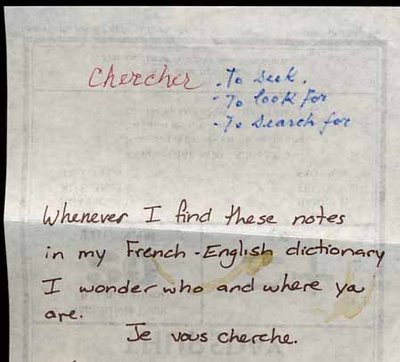 Chercher - To seek.
- To look for
- To search for
Whenever I find these notes
in my French-English dictionary
I wonder who and where you
are.
Je vous cherche.